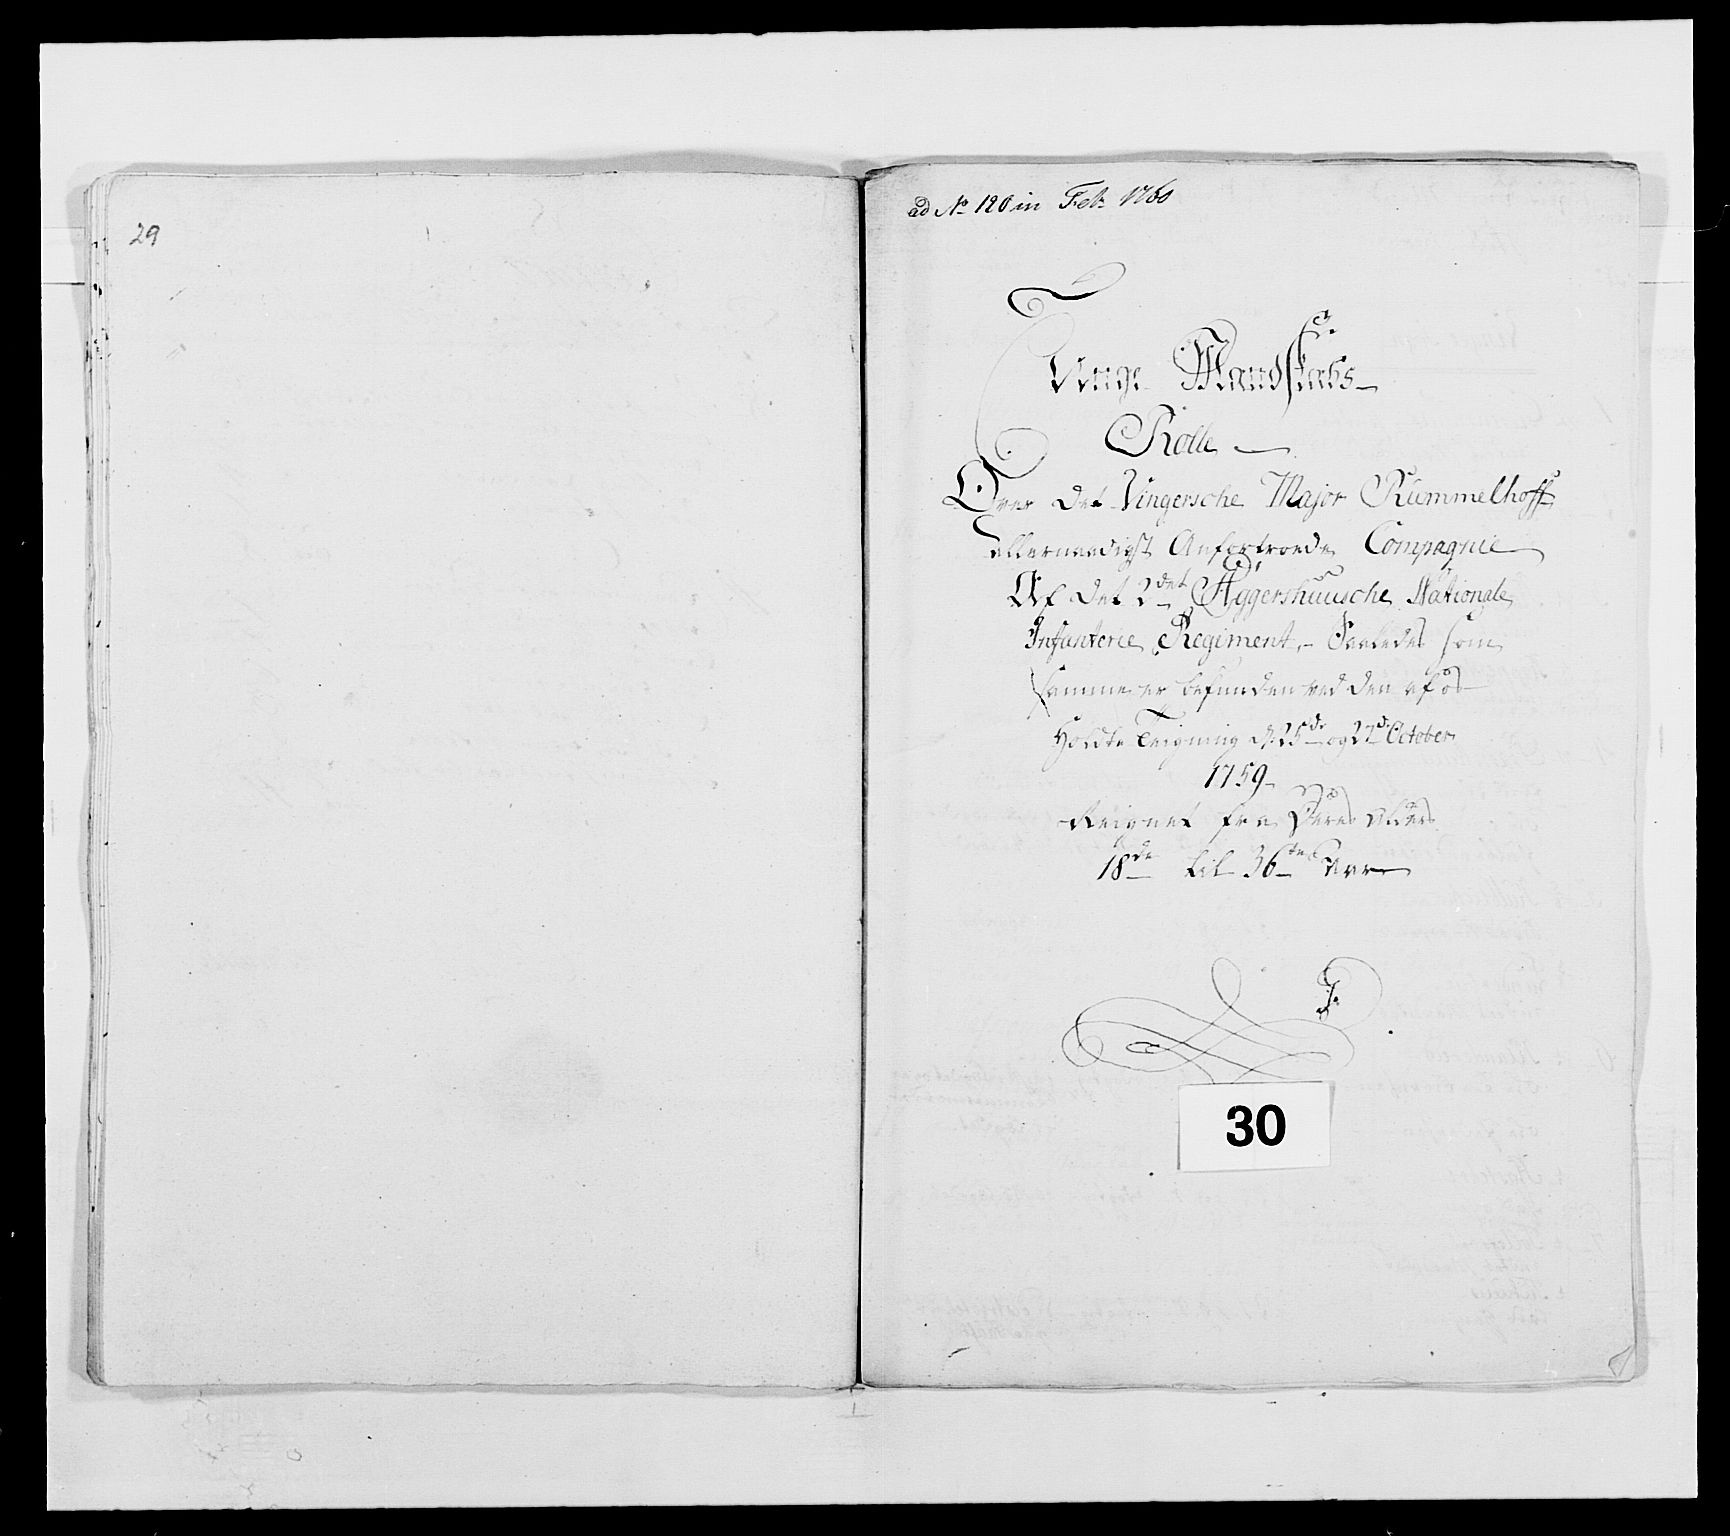 29
ad No 120 in Feb: 1760
Unge Mandskabs
Rolle
Over det Vingersche Major Rümmelhoff
allernaadigst Anfortroede Compagnie
Af det 2det Aggershuusche Nationale
Infanterie Regiment, Saaledes som
samme er befunden ved den af os
Holdte Teigning d: 25de og 27de October
1759
Reignet fra Deres Alders
18de til 36te Aar
30